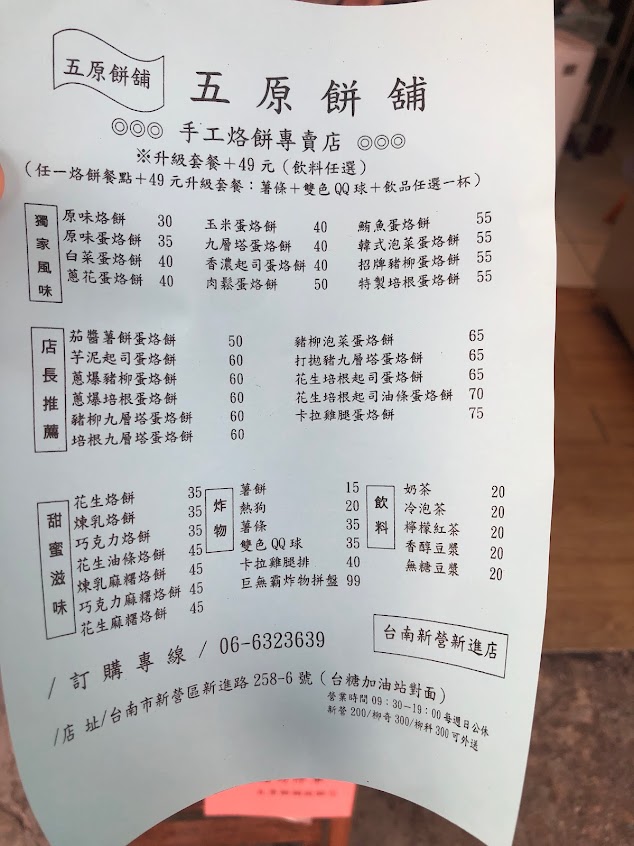 五原餅舖
五原餅舖
◎◎◎ 手工烙餅專賣店 ◎◎◎
※升級套餐＋49元（飲料任選）
（任一烙餅餐點＋49元升級套餐：薯條＋雙色QQ球＋飲品任選一杯）
獨家風味
原味烙餅 30
原味蛋烙餅 35
白菜蛋烙餅 40
蔥花蛋烙餅 40
玉米蛋烙餅 40
九層塔蛋烙餅 40
香濃起司蛋烙餅 40
肉鬆蛋烙餅 50
鮪魚蛋烙餅 55
韓式泡菜蛋烙餅 55
招牌豬柳蛋烙餅 55
特製培根蛋烙餅 55
店長推薦
茄醬薯餅蛋烙餅 50
芋泥起司蛋烙餅 60
蔥爆豬柳蛋烙餅 60
蔥爆培根蛋烙餅 60
豬柳九層塔蛋烙餅 60
培根九層塔蛋烙餅 60
豬柳泡菜蛋烙餅 65
打拋豬九層塔蛋烙餅 65
花生培根起司蛋烙餅 65
花生培根起司油條蛋烙餅 70
卡拉雞腿蛋烙餅 75
甜蜜滋味
花生烙餅 35
煉乳烙餅 35
巧克力烙餅 35
花生油條烙餅 45
煉乳麻糬烙餅 45
巧克力麻糬烙餅 45
花生麻糬烙餅 45
炸物
薯餅 15
熱狗 20
薯條 35
雙色QQ球 35
卡拉雞腿排 40
巨無霸炸物拼盤 99
飲料
奶茶 20
冷泡茶 20
檸檬紅茶 20
香醇豆漿 20
無糖豆漿 20
台南新營新進店
/訂購專線/ 06-6323639
/店 址/台南市新營區新進路258-6號（台糖加油站對面）
營業時間09：30－19：00每週日公休
新營200/柳奇300/柳科300可外送